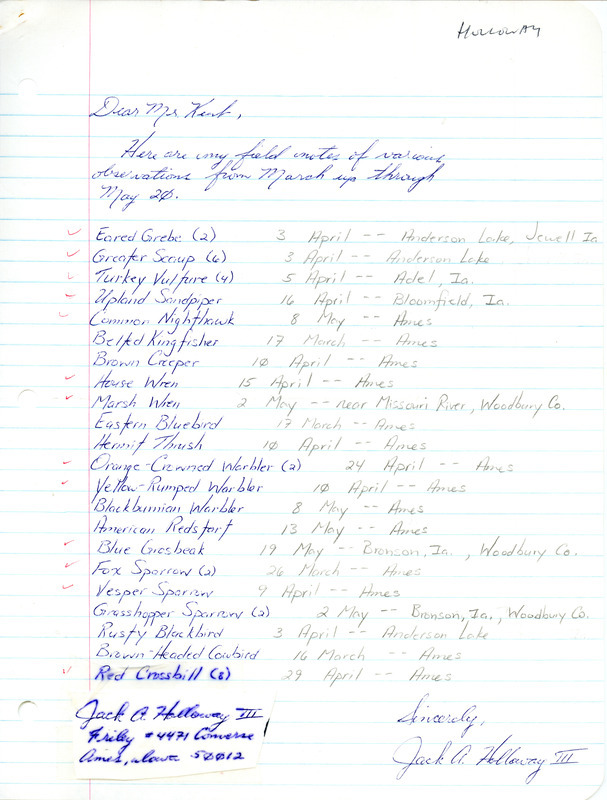 Holloway
Dear Mr. Kent,
Here are my field notes of various
observations from March up through
May 20.
Eared Grebe (2) 3 April -- Anderson Lake, Jewell Ia.
Greater Scaup (6) 3 April -- Anderson Lake
Turkey Vulture (4) 5 April -- Adel, Ia.
Upland Sandpiper 16 April -- Bloomfield, Ia.
Common Nighthawk 8 May -- Ames
Belted Kingfisher 17 March -- Ames
Brown Creeper 10 April -- Ames
House Wren 15 April -- Ames
Marsh Wren 2 May -- near Missouri River, Woodbury Co.
Eastern Bluebird 17 March -- Ames
Hermit Thrush 10 April -- Ames
Orange-Crowned Warbler (2) 24 April -- Ames
Yellow-Rumped Warbler 10 April -- Ames
Blackburnian Warbler 8 May -- Ames
American Redstart 13 May -- Ames
Blue Grosbeak 19 May -- Bronson, Ia., Woodbury Co.
Fox Sparrow (2) 26 March -- Ames
Vesper Sparrow 9 April -- Ames
Grasshopper Sparrow (2) 2 May -- Bronson, Ia., Woodbury Co.
Rusty Blackbird 3 April -- Anderson Lake
Brown-Headed Cowbird 16 March -- Ames
Red Crossbill (8) 29 April -- Ames
Sincerely,
Jack A. Holloway III
Jack A. Holloway III
Friley #4471 Converse
Ames, Iowa 50012